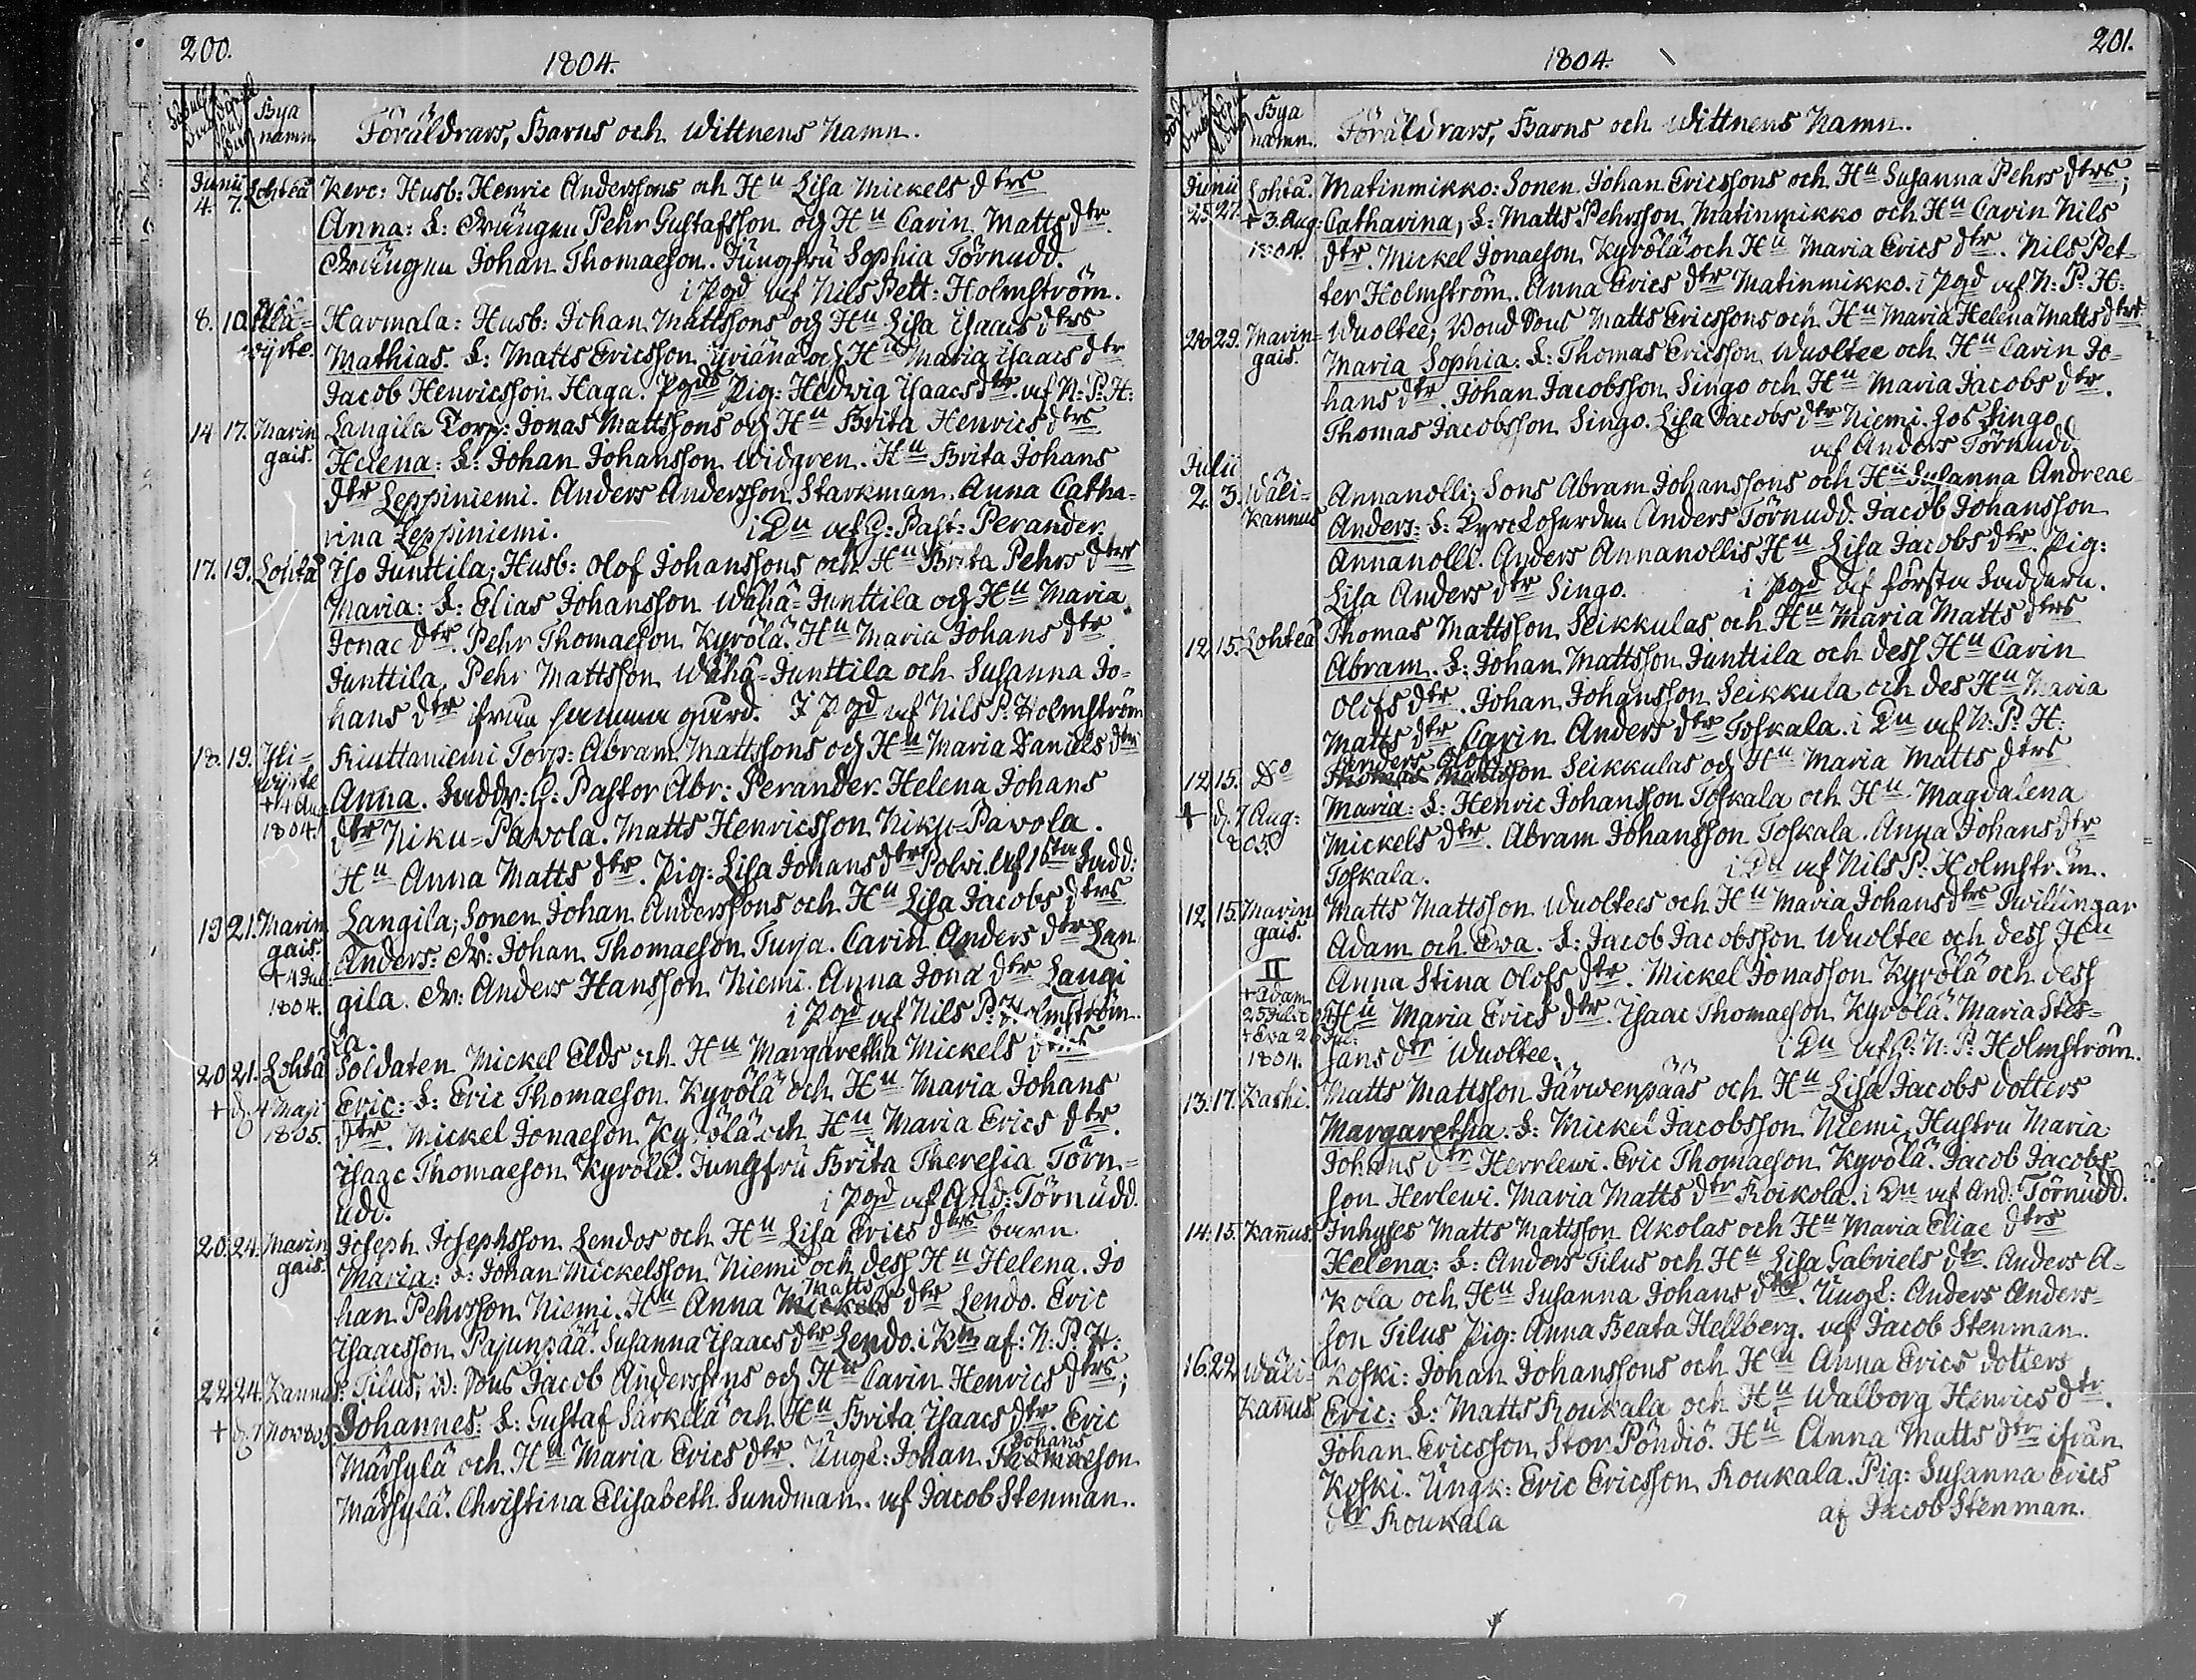 200.
1804.
Bya
namn
Föräldrars, Barns och Wittnens Namn.
Junii
4. 7. Lohteå Kerc: Husb: Henric Anderssons och Hu Lisa Mickels dtrs
Anna: L: Drängen Pehr Gustafsson och Hu Carin Matts dtr.
Drängen Johan Thomaeson. Jungfru Sophia Törnudd.
i Pgd af Nils Pett: Holmström.
8. 10. Harmala: Husb: Johan Mattssons och Hu Lisa Isaacs dtrs
Mathias. L: Matts Ericsson och Hu Maria Isaacs dtr
Jacob Henricsson Haga. Pgds Pig: Hedwig Isaacs dtr. af N: P: H:
14 17. Marin Langila Torp: Jonas Mattssons och Hu Brita Henrics dtrs
gais. Helena: L: Johan Johansson Widgren. Hu Brita Johans
dtr Leppiniemi. Anders Andersson Starkman. Anna Catha-
rina Leppiniemi. i Dn af C: Past: Perander.
17. 19. Lohteå Iso Junttila; Husb: Olof Johanssons och Hu Brita Pehrs dtrs
Maria: L: Elias Johansson Wähä-Junttila och Hu Maria
Jonae dtr. Pehr Thomaeson Kyrölä. Hu Maria Johans dtr
Junttila, Pehr Mattsson Wähä-Junttila och Susanna Jo-
hans dtr ifrån samma gård. I Pgd af Nils P: Holmström
18. 19. Yli- Kiuttaniemi Torp: Abram Mattssons och Hu Maria Daniels dtr
wijrte
+ 4 Aug Anna. Fadd: C: Pastor Abr: Perander. Helena Johans
1804. dtr Niku-Pawola. Matts Henricsson Niku-Pawola.
Hu Anna Matts dtr. Pig: Lisa Johans dtr Polvi. af 1sta Fadd:
19 21. Marin Langila; Sonen Johan Anderssons och Hu Lisa Jacobs dtrs
gais. Anders: Dr: Johan Thomaeson Turja. Carin Anders dtr Lan
+ 4 Jul: gila. Dr: Anders Hansson Niemi. Anna Jona dtr Langi
1804. i Pgd af Nils P: Holmström.
la.
20 21. Lohteå Soldaten Mickel Elds och Hu Margaretha Mickels dtrs
+ d. 4 Maji Eric: L: Eric Thomaeson Kyrölä och Hu Maria Johans
1805. dtr. Mickel Jonaeson Kyrölä och Hu Maria Erics dtr.
Isaac Thomaeson Kyrölä. Jungfru Brita Theresia Törn-
udd. i Pgd af And: Törnudd.
20. 24. Marin Joseph Josephsson Lendos och Hu Lisa Erics dtrs barn
gais. Maria: L: Johan Mickelsson Niemi och dess Hu Helena. Jo
Matts
han Pehrsson Niemi. Hu Anna Mickels dtr Lendo. Eric
Isaacsson Pajunpää. Susanna Isaacs dtr Lendo. i Kn af: N: P: H:
22 24. Kannus: Tilus, Sons Jacob Anderssons och Hu Carin Henrics dtrs;
+ d. 7 Nov 805 Johannes: L: Gustaf Särkelä och Hu Brita Isaacs dtr. Eric
Johans
Märsylä och Hu Maria Erics dtr. Ungk: Johan Thomaeson
Märsylä. Christina Elisabeth Sundman. af Jacob Stenman.
201.
1804
Bya
namn.
Föräldrars, Barns och Wittnens Namn.
Junii
25. 27. Lohteå. Matinmikko: Sonen Johan Ericssons och Hu Susanna Pehrs dtrs;
+ 3. Aug: Catharina, L: Matts Pehrsson Matinmikko och Hu Carin Nils
1804. dtr. Mickel Jonaeson Kyrölä och Hu Maria Erics dtr. Nils Pet-
ter Holmström. Anna Erics dtr Matinmikko. i Pgd af N: P: H:
28 29. Marin- Wuoltee; Bond Sons Matts Ericssons och Hu Maria Helena Matts dtrs
gais. Maria Sophia. L: Thomas Ericsson Wuoltee och Hu Carin Jo-
hans dtr. Johan Jacobsson Singo och Hu Maria Jacobs dtr.
Thomas Jacobsson Singo. Lisa Jacobs dtr Niemi. hos Singo
af Anders Törnudd.
Julii
2. 3. Wäli- Annanolli; Sons Abram Johanssons och Hu Susanna Andreae
kannus Anders: L: Anders Törnudd. Jacob Johansson
Annanolli. Anders Annanollis Hu Lisa Jacobs dtr. Pig:
Lisa Anders dtr Singo. i Pgd af första Faddern.
12. 15. Lohteå Thomas Mattsson Seikkulas och Hu Maria Matts dtrs
Abram. L: Johan Mattsson Junttila och dess Hu Carin
Olofs dtr. Johan Johansson Seikkula och des Hu Maria
Matts dtr Carin Anders dtr Toskala. i Dn af N: P: H:
Anders Olofs
12 15. Do Thomas Mattsson Seikkulas och Hu Maria Matts dtrs
+ d. 7 Aug: Maria: L: Henric Johansson Toskala och Hu Magdalena
805. Mickels dtr. Abram Johansson Toskala. Anna Johans dtr
Toskala. i Dn af Nils P: Holmström.
12 15. Marin Matts Mattsson Wuoltees och Hu Maria Johans dtrs Twillingar
gais. Adam och Ewa. L: Jacob Jacobsson Wuoltee och dess Hu
II Anna Stina Olofs dtr. Mickel Jonasson Kyrölä och dess
+ Adam
25 Julii Hu Maria Erics dtr. Isaac Thomaeson Kyrölä. Maria Stef-
+ Eva 26 Jul:
1804. fans dtr Wuoltee. i Dn af C: N: P: Holmström.
13. 17. Kashi. Matts Mattsson Järwenpääs och Hu Lisa Jacobs dotters
Margaretha. L: Mickel Jacobsson Niemi, Hustru Maria
Johans dtr Herrlewi. Eric Thomaeson Kyrölä. Jacob Jacobs-
son Herlewi. Maria Matts dtr Koikola. i Dn af And: Törnudd.
14. 15. Kañus. Inhyses Matts Mattsson Akolas och Hu Maria Eliae dtrs
Helena: L: Anders Tilus och Hu Lisa Gabriels dtr. Anders A-
kola och Hu Susanna Johans dtr. Ungk: Anders Anders-
son Tilus Pig: Anna Beata Hellberg. af Jacob Stenman.
16. 22 Wäli- Koski: Johan Johanssons och Hu Anna Erics dotters
Kañus Eric: L: Matts Roukala och Hu Walborg Henrics dtr.
Johan Ericsson Stor Pöndiö. Hu Anna Matts dtr ifrån
Koski. Ungk: Eric Ericsson Roukala. Pig: Susanna Erics
dtr Roukala af Jacob Stenman.